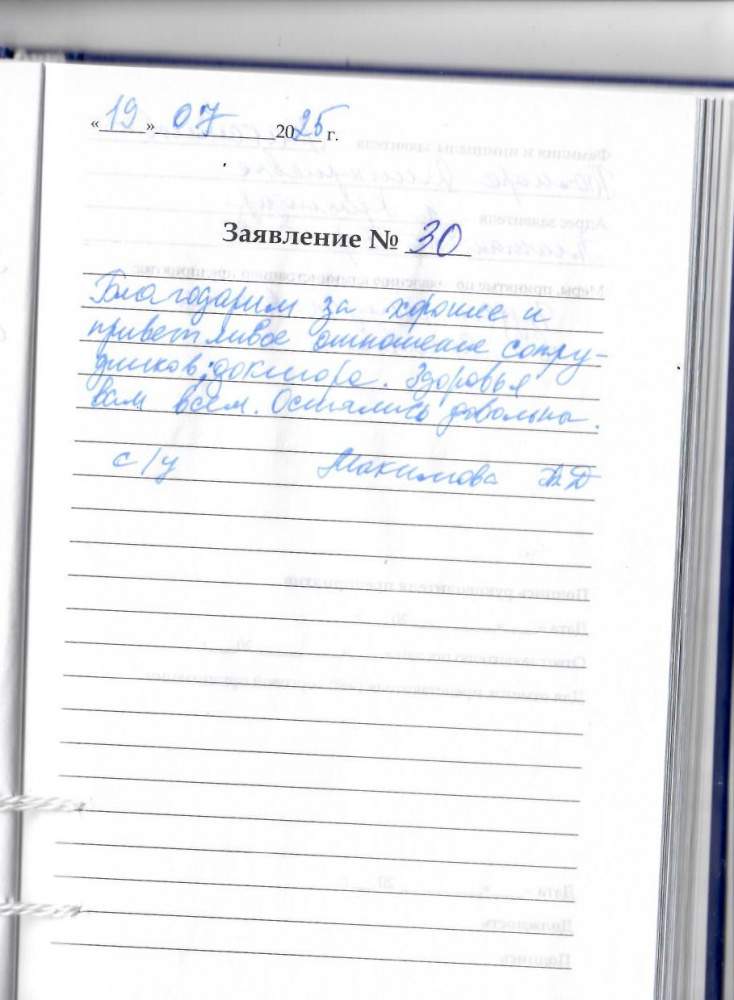 «19» 07 2025 г.
Заявление № 30
Благодарим за хорошее и
приветливое отношение сотру-
дников, доктора. Здоровья
вам всем. Остались довольна.
с/у Макимова